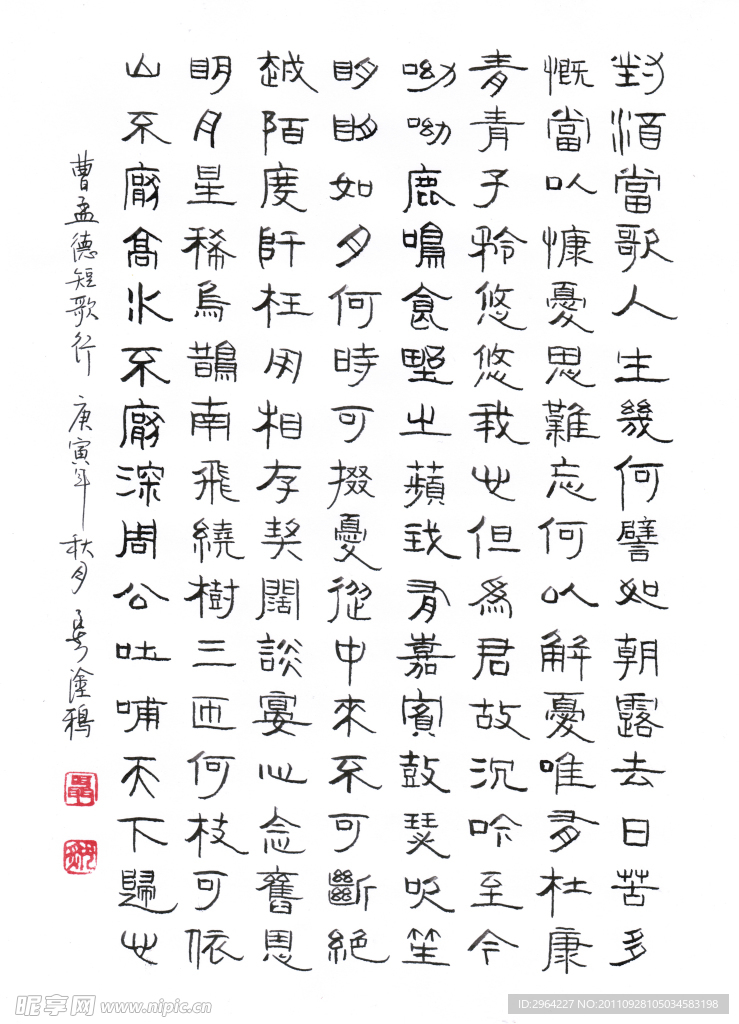 對酒當歌人生幾何譬如朝露去日苦多
慨當以慷憂思難忘何以解憂唯有杜康
青青子衿悠悠我心但爲君故沉吟至今
呦呦鹿鳴食野之蘋我有嘉賓鼓瑟吹笙
明明如月何時可掇憂從中來不可斷絕
越陌度阡枉用相存契闊談宴心念舊恩
明月星稀烏鵲南飛繞樹三匝何枝可依
山不厭高水不厭深周公吐哺天下歸心
曹孟德短歌行 庚寅年秋月 塗鴉
昵享网 www.nipic.cn
ID:2964227 NO:20110928105034583198